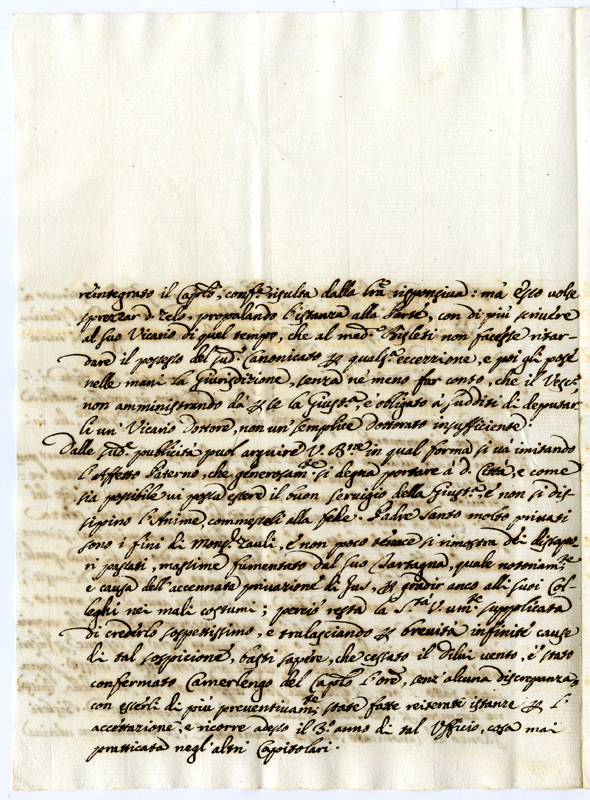 reintegrato il Caplo, conf.e risulta dalla lra risponsiva: mà esso volse
sprezzar d. zelo, propalando l'istanza alla Parte, con di più scrivere
al suo Vicario di quel tempo, che al med.o Bisleti non facesse ritar-
dare il possesso del sud.o Canonicato qualsa eccezzione, e poi gli pose
nelle mani la Giurisdizione, senza ne meno far conto, che il Vesc.o
non amministrando dà se la Giust.a, e obligato à sudditi di deputar
li un' Vicario Dottore, non un' semplice dottorato insufficiente.
Dalle sud.e publicità puol arguire V. Bne in qual forma si và imitando
l'Affetto Paterno, che generosam.te si degna portare à d.a Città, e come
sia possibile vi possa essere il buon servigio della Giust.a, è non si dis-
sipino l'Anime, commessoli alla fede. Padre Santo molto privati
sono i fini di Mong.r Zauli, è non poco tenace si rimostra dei
ri passati, massime fumentato dal suo Sartagna, quale notoriam.te
e causa dell'accennata privazione di Jus, gradir anco alli suoi Col-
leghi nei mali costumi; perciò resta la S.tà V. um.te supplicata
di crederlo sospettissimo, e tralasciando brevità infinite cause
di tal sospicione, basti sapere, che cessato il dilui vento, è stato
confermato Camerlengo del Caplo l'ore, senz'alcuna discrepanza,
con esserli di più preventivam.te state fatte reiterate istanze l'
accettazione, e ricorre adesso il 3.o anno di tal Ufficio, cosa mai
pratticata negl'altri Capitolari.